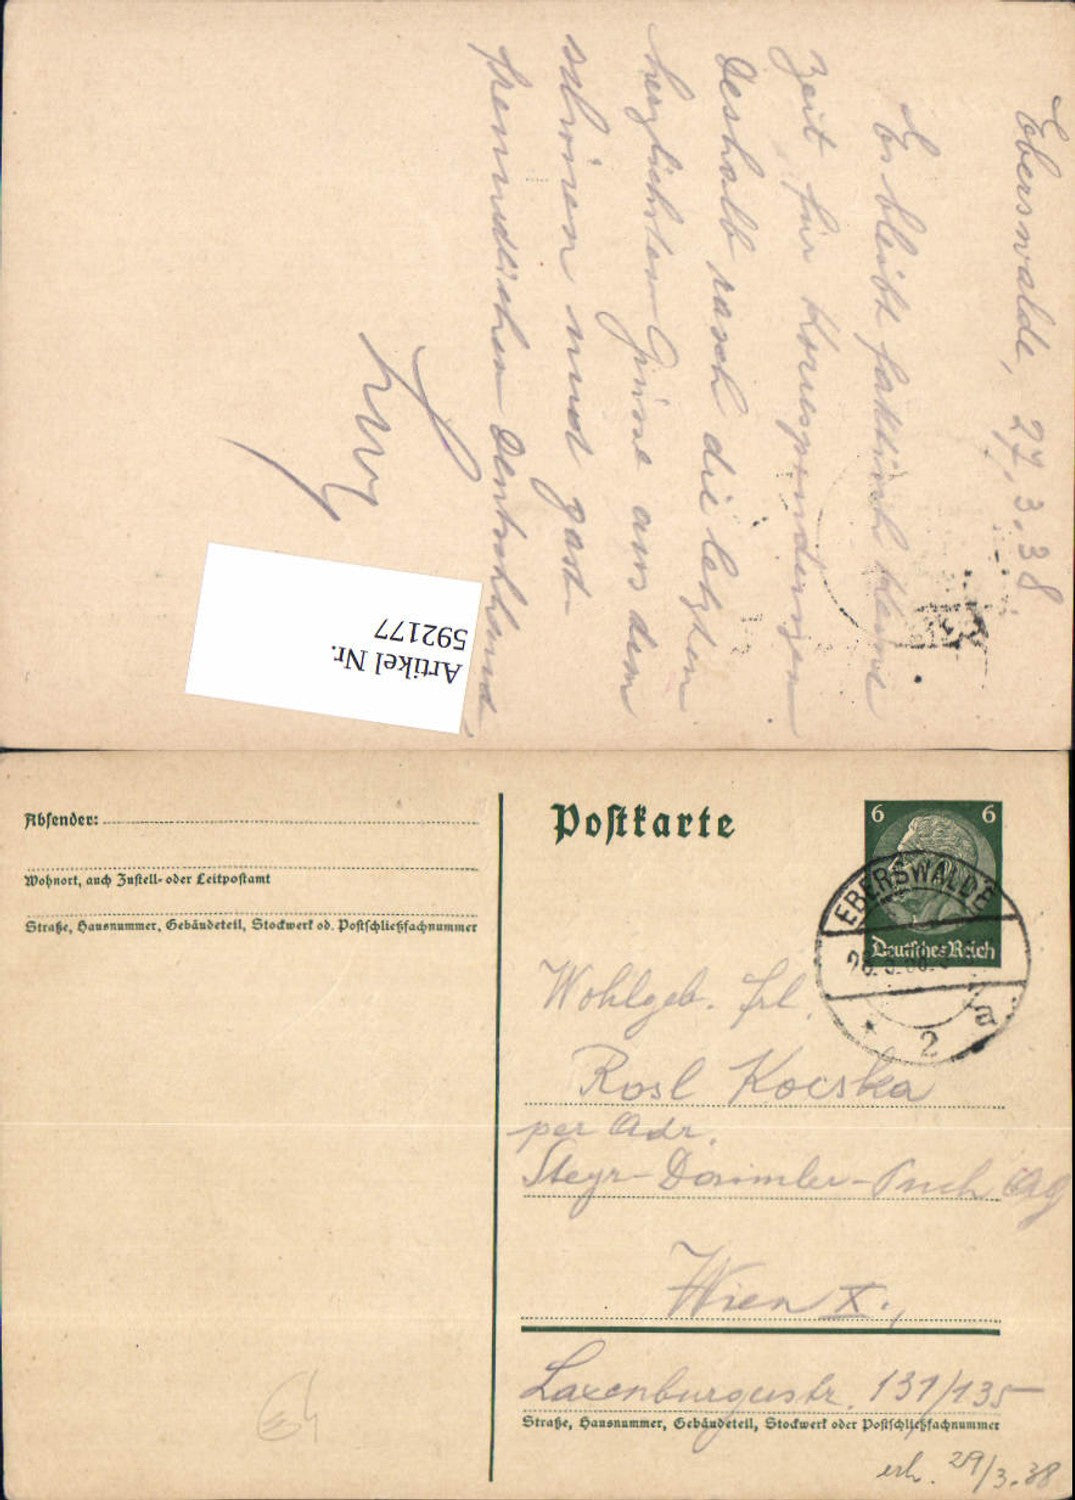 Eberswalde, 27.3.38
Es bleibt faktisch keine
Zeit für Korrespondenzen
Deshalb rasch die letzten
herzlichsten Grüsse aus dem
schönen und gast-
freundlichen Deutschland.
Artikel Nr.
592177
Absender:
Wohnort, auch Zustell- oder Leitpostamt
Straße, Hausnummer, Gebäudeteil, Stockwerk od. Postschließfachnummer
Postkarte
6 6
Deutsches Reich
EBERSWALDE
* 2 a
Wohlgeb. Frl.
Rosl Kocska
per Adr.
Steyr-Daimler-Puch AG
Wien X.,
Laxenburgerstr. 131/135
Straße, Hausnummer, Gebäudeteil, Stockwerk oder Postschließfachnummer
erh. 29/3.38